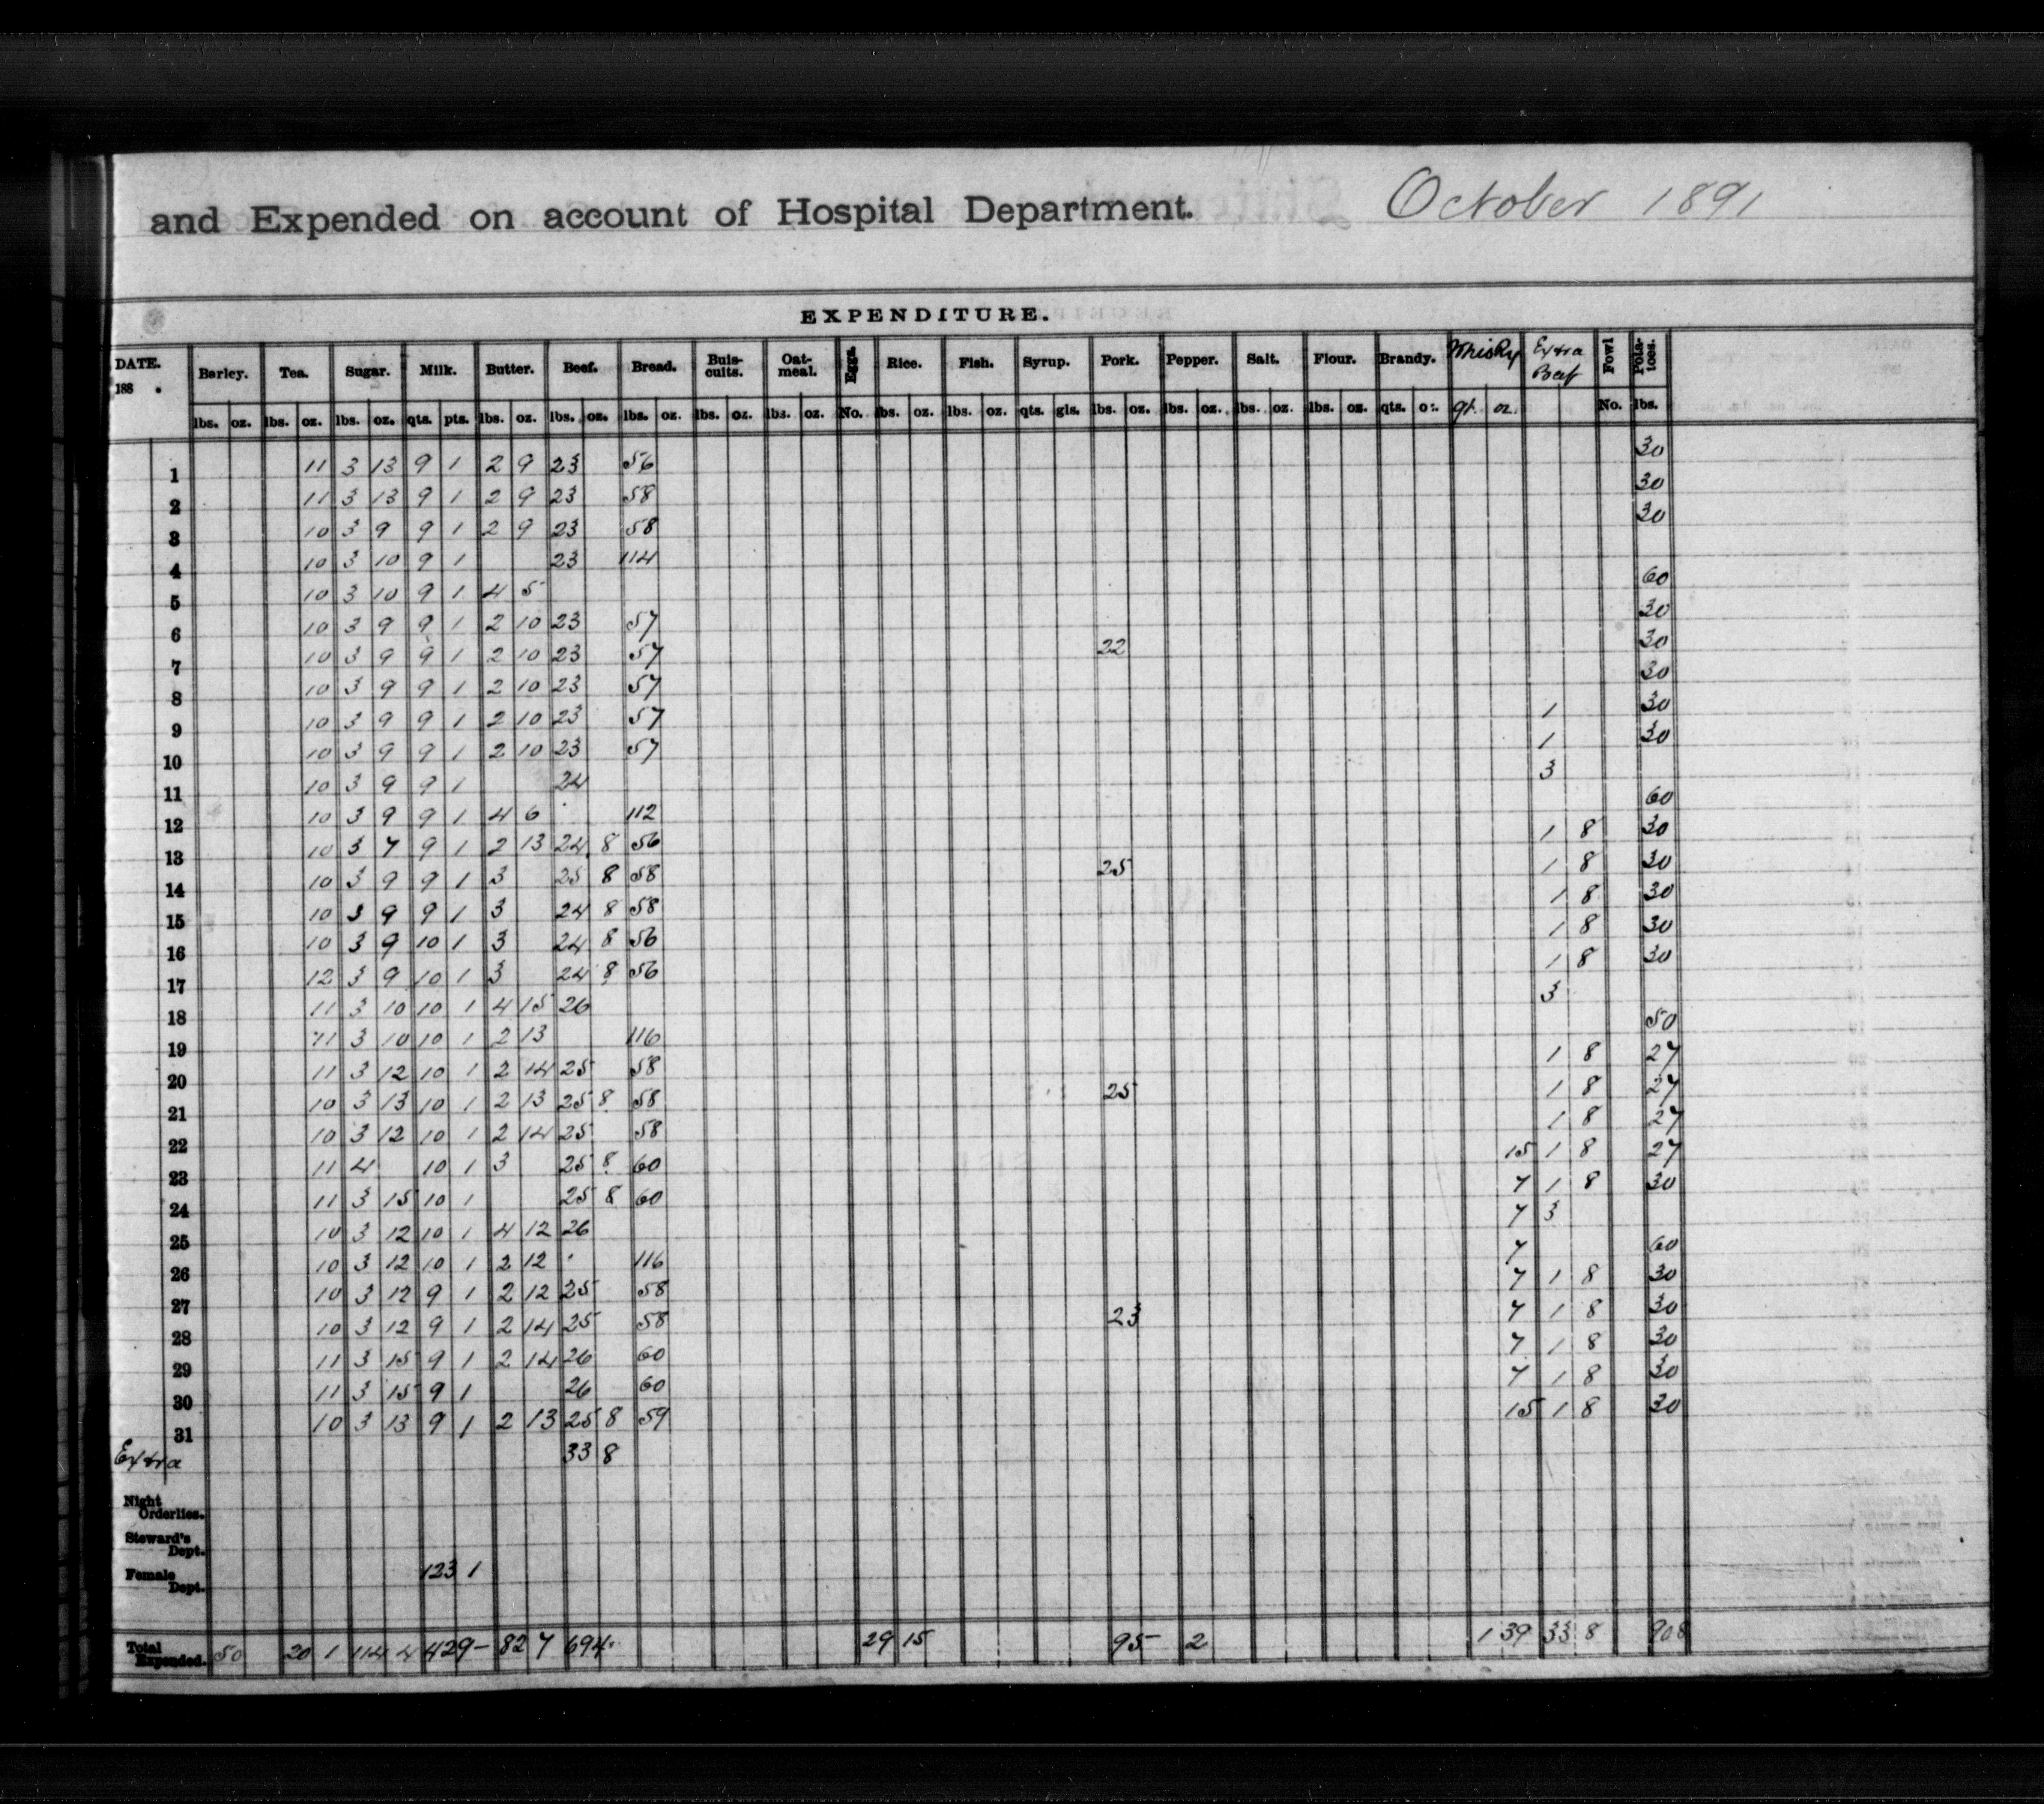 and Expended on account of Hospital Department. October 1891
EXPENDITURE.
DATE. 188 . Barley. Tea. Sugar. Milk. Butter. Beef. Bread. Buis-cuits. Oat-meal. Eggs. Rice. Fish. Syrup. Pork. Pepper. Salt. Flour. Brandy. Whisky Extra Beef Fowl Pota-toes.
lbs. oz. lbs. oz. lbs. oz. qts. pts. lbs. oz. lbs. oz. lbs. oz. lbs. oz. lbs. oz. No. lbs. oz. lbs. oz. qts. gls. lbs. oz. lbs. oz. lbs. oz. lbs. oz. qts. oz. qt. oz. No. lbs.
1 11 3 13 9 1 2 9 23 56 30
2 11 3 13 9 1 2 9 23 58 30
3 10 3 9 9 1 2 9 23 58 30
4 10 3 10 9 1 23 114
5 10 3 10 9 1 4 5 60
6 10 3 9 9 1 2 10 23 57 30
7 10 3 9 9 1 2 10 23 57 22 30
8 10 3 9 9 1 2 10 23 57 30
9 10 3 9 9 1 2 10 23 57 1 30
10 10 3 9 9 1 2 10 23 57 1 30
11 10 3 9 9 1 24 3
12 10 3 9 9 1 4 6 112 60
13 10 3 7 9 1 2 13 24 8 56 1 8 30
14 10 3 9 9 1 3 25 8 58 25 1 8 30
15 10 3 9 9 1 3 24 8 58 1 8 30
16 10 3 9 10 1 3 24 8 56 1 8 30
17 12 3 9 10 1 3 24 8 56 1 8 30
18 11 3 10 10 1 4 15 26 3
19 11 3 10 10 1 2 13 116 50
20 11 3 12 10 1 2 14 25 58 1 8 27
21 10 3 13 10 1 2 13 25 8 58 25 1 8 27
22 10 3 12 10 1 2 14 25 58 1 8 27
23 11 4 10 1 3 25 8 60 15 1 8 27
24 11 3 15 10 1 25 8 60 7 1 8 30
25 10 3 12 10 1 4 12 26 7 3
26 10 3 12 10 1 2 12 116 7 60
27 10 3 12 9 1 2 12 25 58 7 1 8 30
28 10 3 12 9 1 2 14 25 58 23 7 1 8 30
29 11 3 15 9 1 2 14 26 60 7 1 8 30
30 11 3 15 9 1 26 60 7 1 8 30
31 10 3 13 9 1 2 13 25 8 59 15 1 8 30
Extra 33 8
Night Orderlies.
Steward's Dept.
Female Dept. 123 1
Total Expended. 50 20 1 114 4 429 - 82 7 694 29 15 95 - 2 1 39 33 8 908